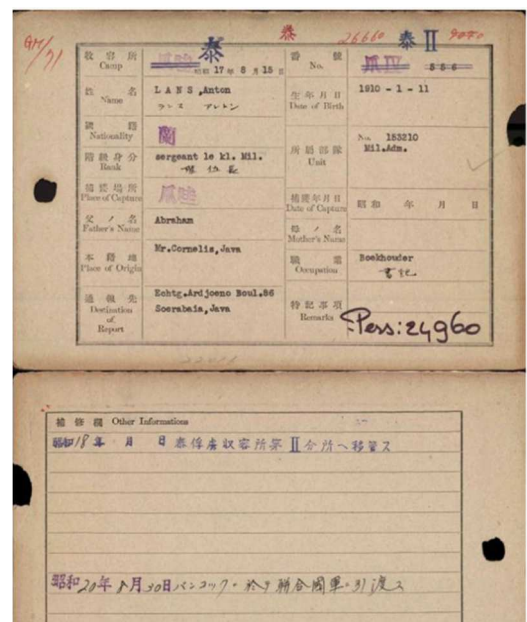 泰
26660 泰 II 9040
収容所 Camp 泰 昭和 17 年 8 月 15 日
番號 No. 爪IV 556
姓名 Name LANS ,Anton
ランス アントン
生年月日 Date of Birth 1910 - 1 - 11
國籍 Nationality 蘭
階級身分 Rank sergeant le kl. Mil.
所屬部隊 Unit No. 153210
Mil.Adm.
捕獲場所 Place of Capture 爪哇
捕獲年月日 Date of Capture 昭和 年 月 日
父ノ名 Father's Name Abraham
母ノ名 Mother's Name
本籍地 Place of Origin Mr.Cornelis,Java
職業 Occupation Boekhouder
書記
通報先 Destination of Report Echtg.Ardjoeno Boul.86
Soerabaia,Java
特記事項 Remarks Pers: 24960
補修欄 Other Informations
昭和18年 月 日 泰俘虜収容所第II分所ヘ移管ス
昭和20年8月30日バンコックニ於テ聯合國軍ニ引渡ス